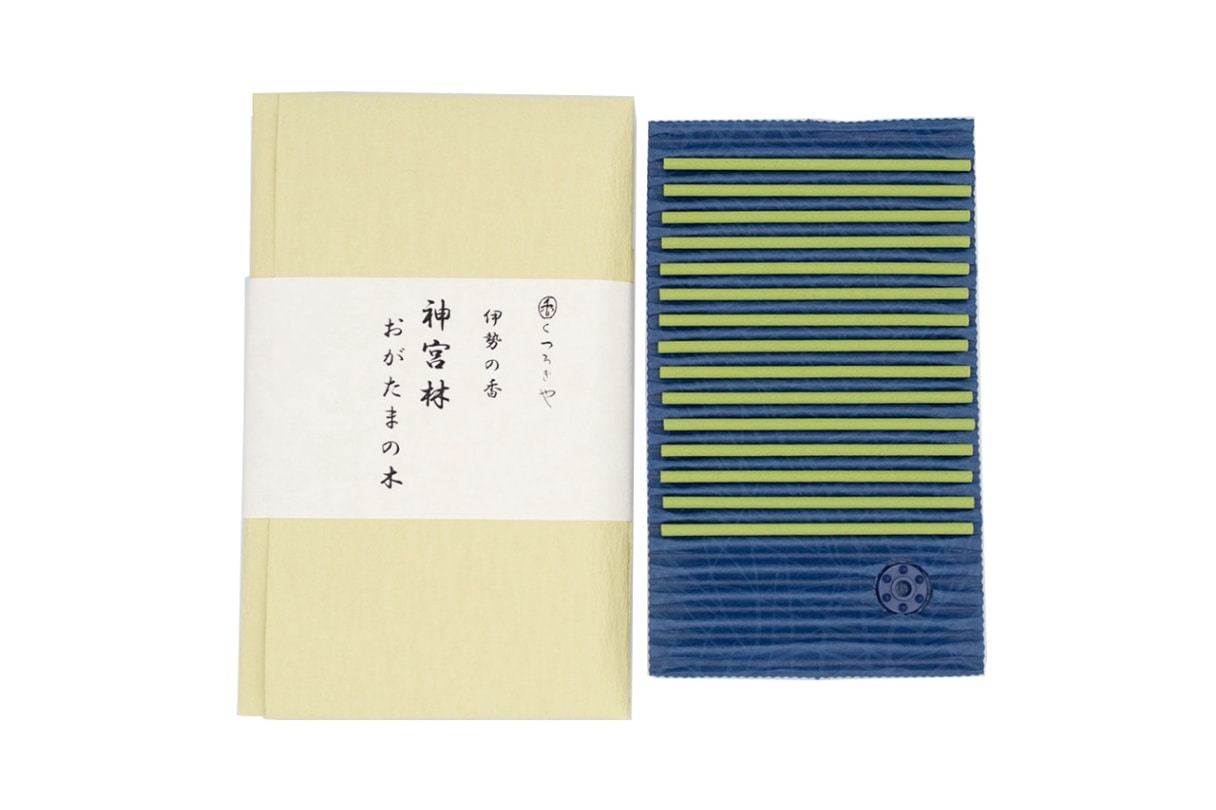 香くつろぎや
伊勢の香
神宮林
おがたまの木